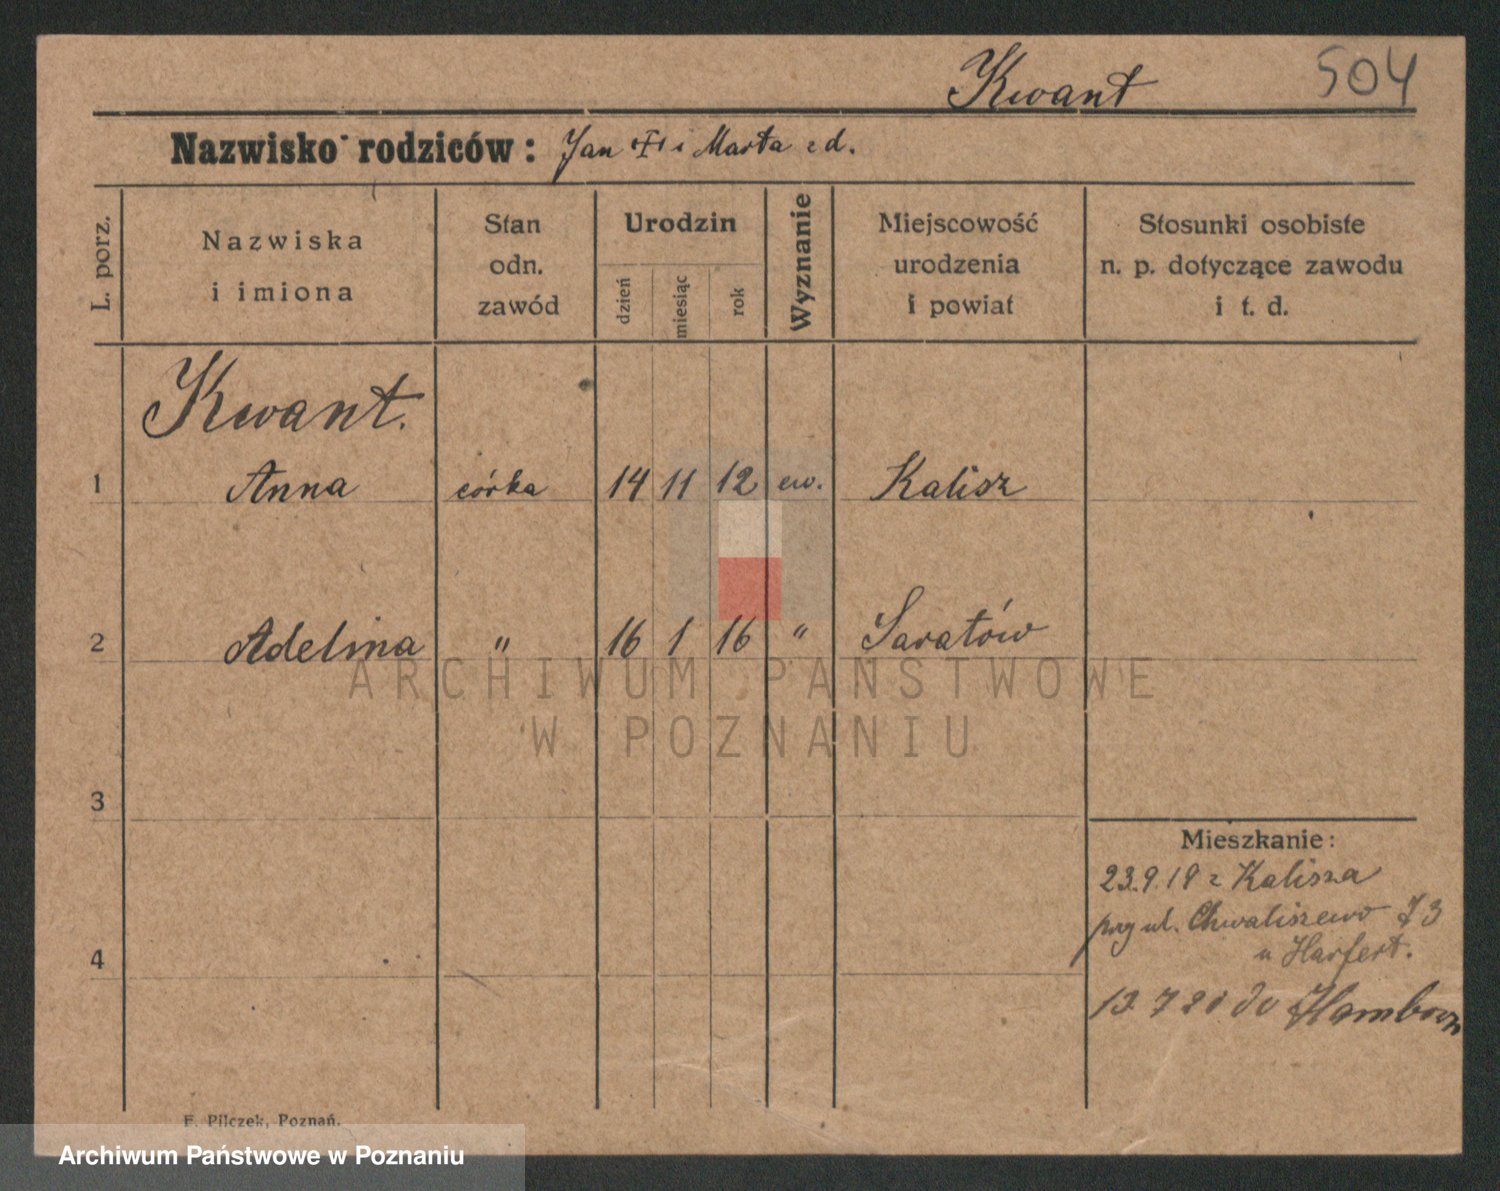 Kwant 504
Nazwisko rodziców: Jan † i Marta z d.
L. porz.
Nazwiska
i imiona
Stan
odn.
zawód
Urodzin
dzień
miesiąc
rok
Wyznanie
Miejscowość
urodzenia
i powiat
Stosunki osobiste
n. p. dotyczące zawodu
i t. d.
Kwant.
1 Anna córka 14 11 12 ew. Kalisz
2 Adelina " 16 1 16 " Saratów
ARCHIWUM PAŃSTWOWE
W POZNANIU
3
4
Mieszkanie:
23.9.19 z Kalisza
przy ul. Chwaliszewo 73
u Harfert.
13 7 20 do Hamborn
F. Pilczek, Poznań.
Archiwum Państwowe w Poznaniu